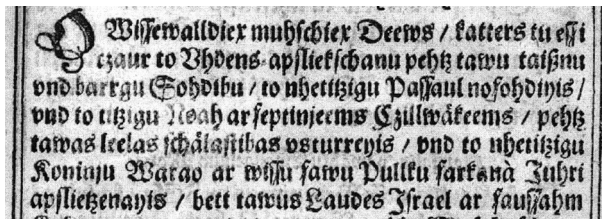 O Wissewalldiex muhschiex Deews / katters tu essi
czaur to Vhdens-apsliekschanu pehtz tawu taißnu
vnd barrgu Sohdibu / to nhetitzigu Passaul nosohdiyis /
vnd to titzigu Noah ar septinjeems Czillwäkeems / pehtz
tawas leelas schälastibas vsturreyis / vnd to nhetitzigu
Koninju Warao ar wissu sawu Pullku sarkanà Juhri
apslietzenayis / bett tawus Laudes Israel ar saussahm